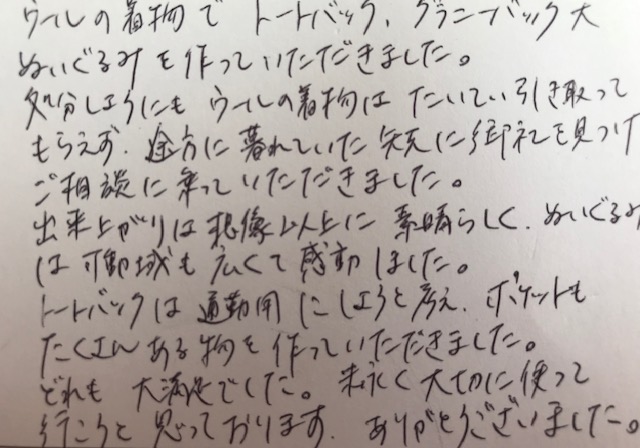 ウールの着物で トートバック、グラニーバック大
ぬいぐるみを作っていただきました。
処分しようにも ウールの着物は たいてい引き取って
もらえず、途方に暮れていた 矢先に御社を見つけ
ご相談に乗っていただきました。
出来上がりは想像以上に 素晴らしく、ぬいぐるみ
は可動域も広くて感動しました。
トートバックは 通勤用にしようと考え、ポケットも
たくさんある物を作っていただきました。
どれも 大満足でした。末永く大切に使って
行こうと思っております。ありがとうございました。